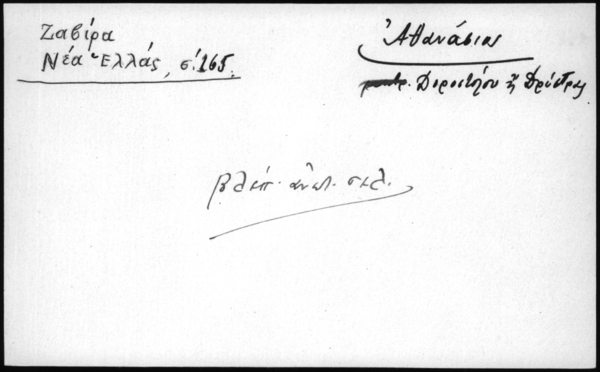 Ζαβίρα
Νέα Ἑλλάς, σ. 165.
Ἀθανάσιος
Δοροστόλου ἢ Δρύστρας
βλέπ. ἀνωτ. σελ.